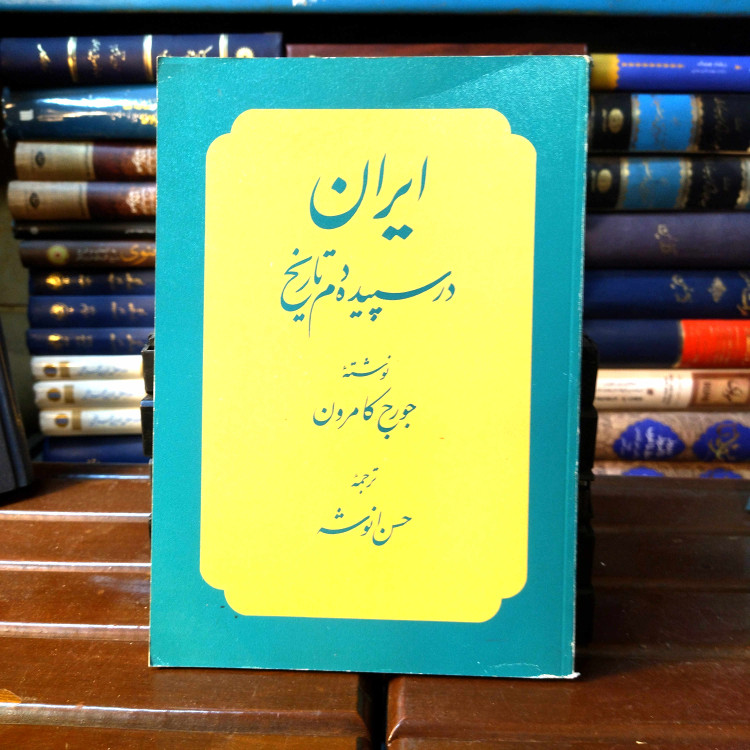 ایران
در سپیده دم تاریخ
نوشتهٔ
جورج کامرون
ترجمهٔ
حسن انوشه